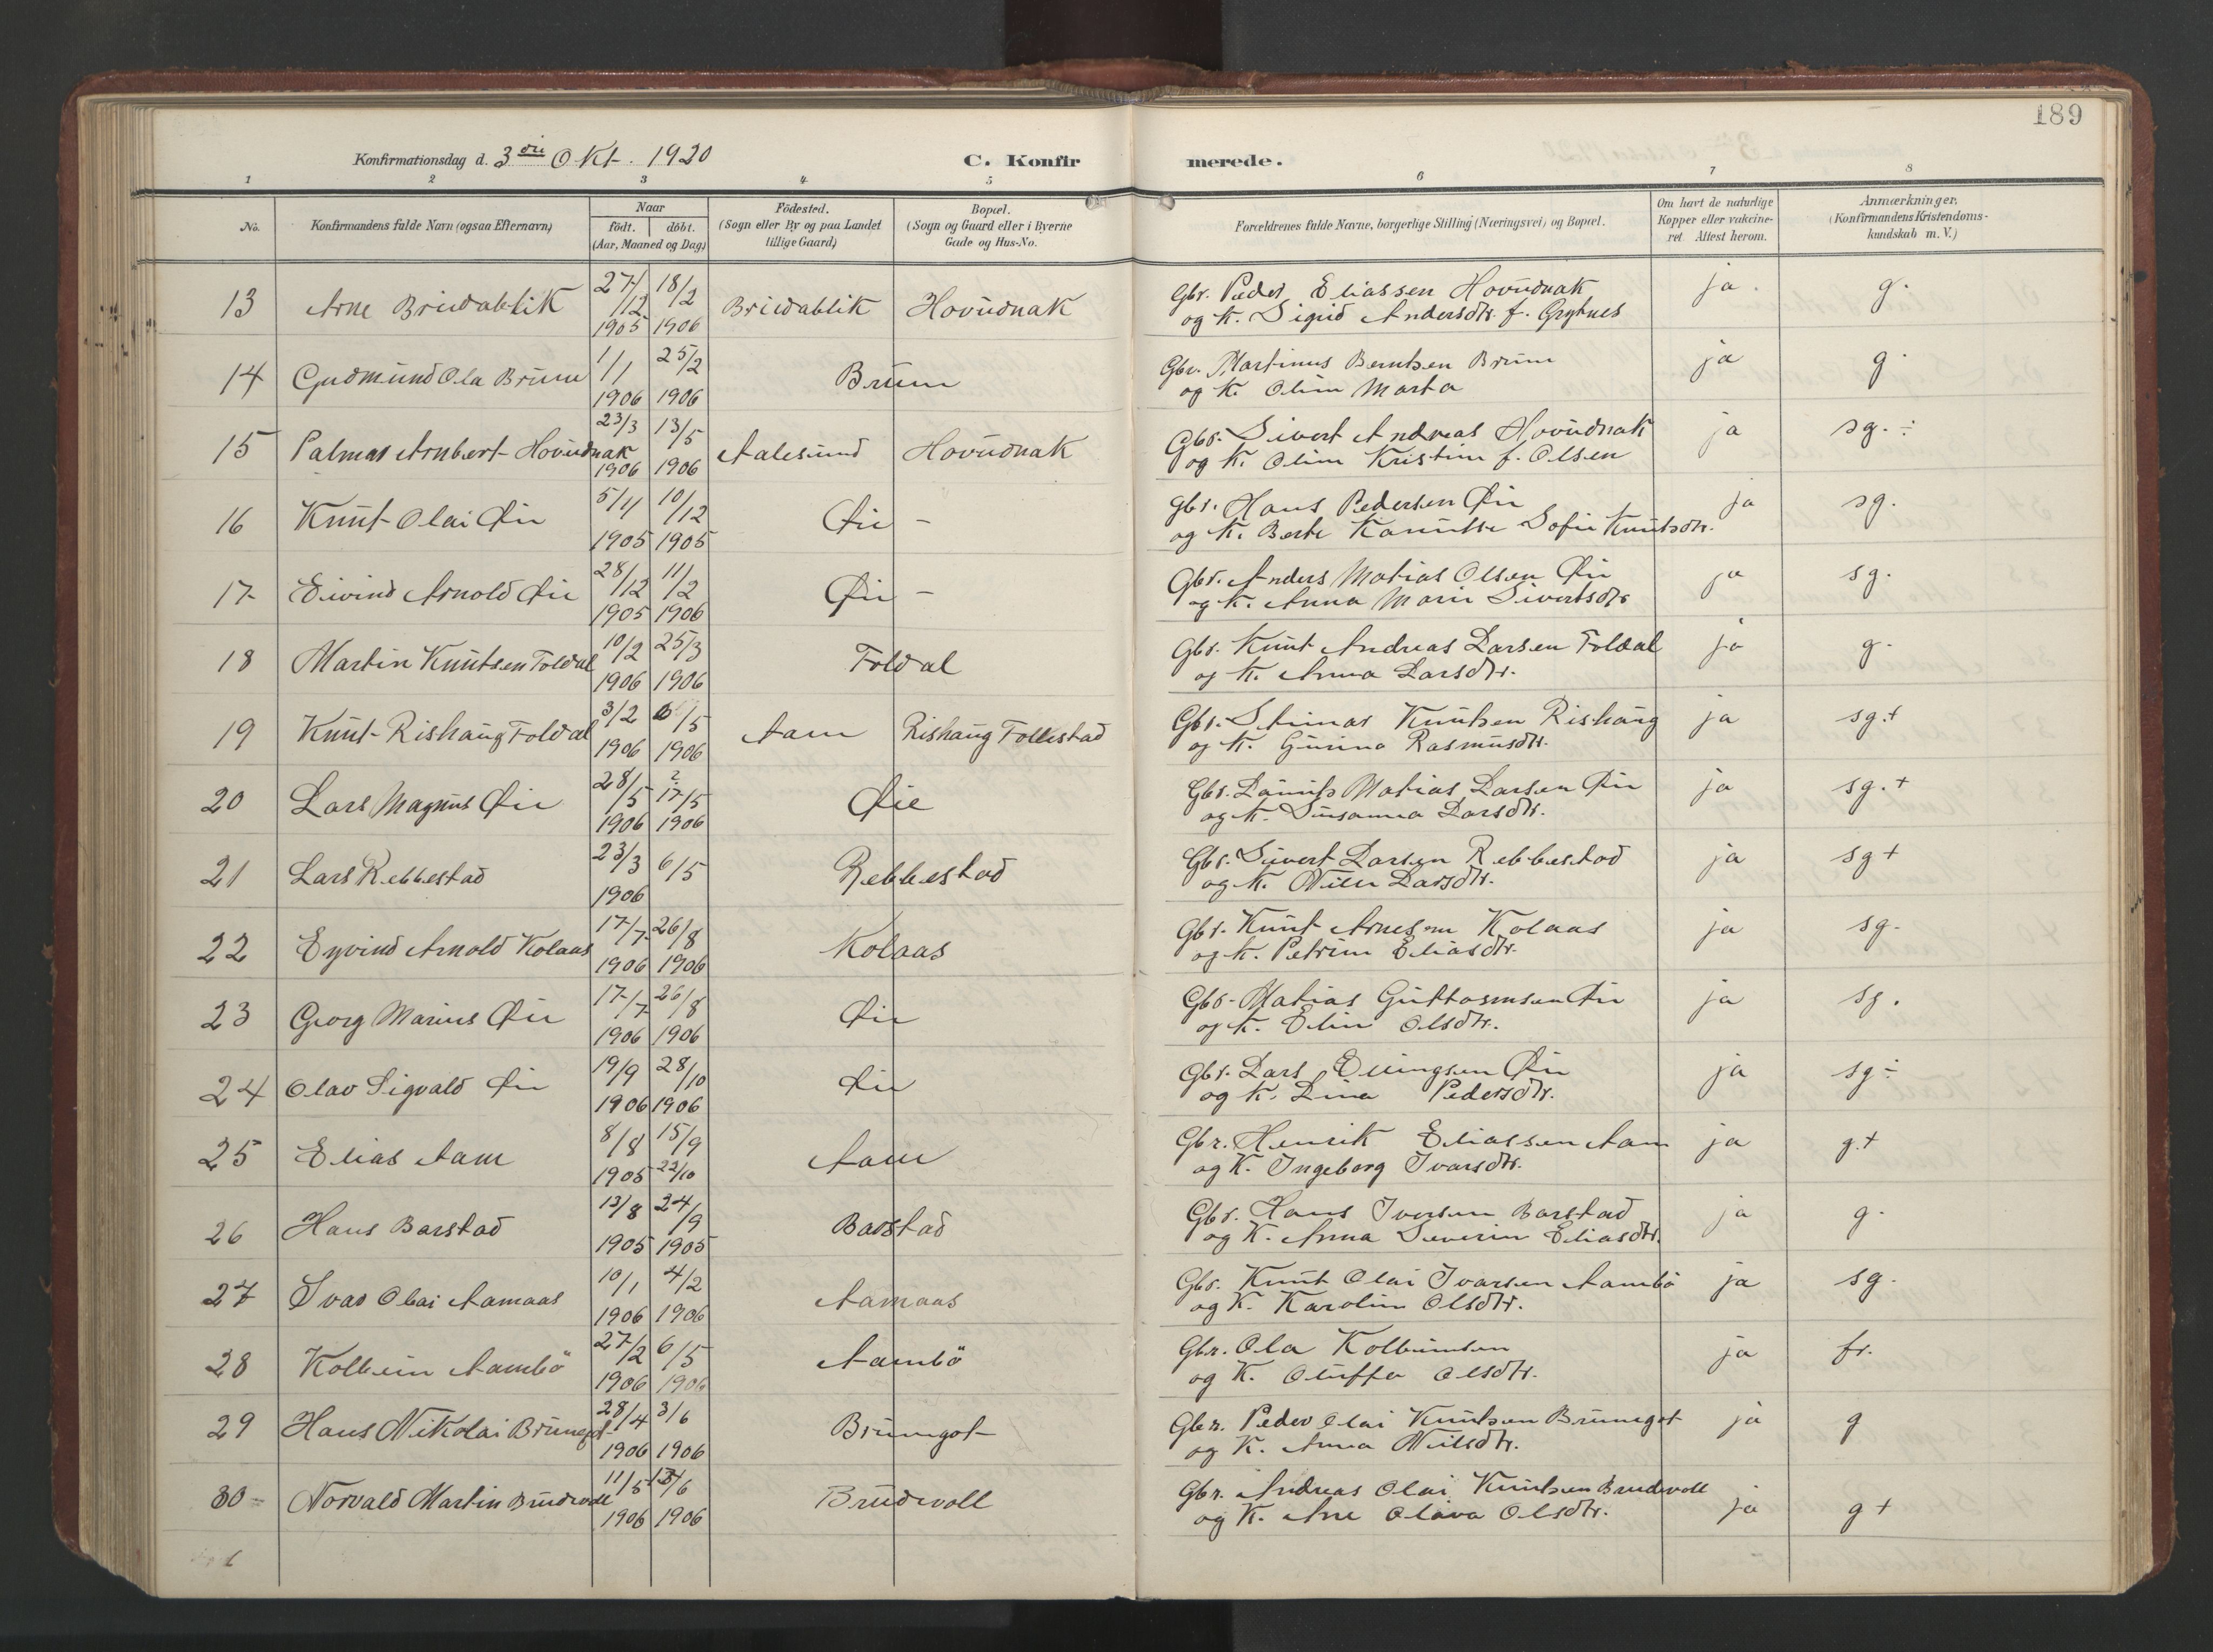 189
Konfirmationsdag d. 3die Okt. 1920
C. Konfirmerede.
1 2 3 4 5 6 7 8
No.
Konfirmandens fulde Navn (ogsaa Efternavn)
Naar
födt. döbt.
(Aar, Maaned og Dag)
Födested.
(Sogn eller By og paa Landet
tillige Gaard)
Bopæl.
(Sogn og Gaard eller i Byerne
Gade og Hus-No.
Forældrenes fulde Navne, borgerlige Stilling (Næringsvei) og Bopæl.
Om havt de naturlige
Kopper eller vakcine-
ret. Attest herom.
Anmærkninger.
(Konfirmandens Kristendoms-
kundskab m. V.)
13 Arne Breidablik 27/12 1905 18/2 1906 Breidablik Hovudnak Gbr. Peder Eliassen Hovudnak ja. g.
og K. Sigrid Andersdtr. f. Grytnes
14 Gudmund Ola Brune 1/1 1906 25/2 1906 Brune Gbr. Martinus Berntsen Brune ja g.
og K. Oline Marta
15 Palmar Arnbert Hovudnak 23/3 1906 13/5 1906 Aalesund Hovudnak Gbr. Sivert Andreas Hovudnak ja sg. ÷
og K. Oline Kristine f. Olsen
16 Knut Olai Øie 5/11 1905 10/12 1905 Øie - Gbr. Hans Pedersen Øie ja sg.
og K. Berte Sofie Knutsdtr.
17 Eivind Arnold Øie 28/12 1905 11/2 1906 Øie - Gbr. Anders Matias Olsen Øie ja sg.
og K. Anna Marie Sivertsdtr
18 Martin Knutsen Foldal 10/2 1906 25/3 1906 Foldal Gbr. Knut Andreas Larsen Foldal ja g.
og K. Anna Larsdtr.
19 Knut Rishaug Foldal 3/2 1906 6/5 1906 Aam Rishaug Follestad Gbr. Steinar Knutsen Rishaug ja sg.+
og K. Gurine Rasmusdtr.
20 Lars Magnus Øie 28/5 1906 ? 17/5 1906 Øie Gbr. Matias Larsen Øie ja sg.+
og K. Susanna Larsdtr.
21 Lars Rebbestad 23/3 1906 6/5 Rebbestad Gbr. Sivert Larsen Rebbestad ja sg+
og K. Larsdtr.
22 Eyvind Arnold Kolaas 17/7 1906 26/8 1906 Kolaas Gbr. Knut Arnesen Kolaas ja sg.
og K. Petrine Eliasdtr.
23 Georg Marius Øie 17/7 1906 26/8 1906 Øie Gbr. Matias Guttormsen Øie ja sg.
og K. Eline Olsdtr.
24 Olav Sigvald Øie 19/9 1906 28/10 1906 Øie Gbr. Lars Ellingsen Øie ja sg ÷
og K. Lina Pedersdtr.
25 Elias Aam 8/8 1905 15/9 22/10 Aam Gbr. Henrik Eliassen Aam ja g.+
og K. Ingeborg Ivarsdtr.
26 Hans Barstad 13/8 1905 24/9 1905 Barstad Gbr. Hans Iversen Barstad ja g.
og K. Anna Severine Eliasdtr.
27 Ivar Olai Aamaas 10/1 1906 4/2 1906 Aamaas Gbr. Knut Olai Ivarsen Aambö ja sg.
og K. Karoline Olsdtr.
28 Kolbein Aambö 27/2 1906 6/5 1906 Aambö Gbr. Ola Kolbeinsen ja fr.
og K. Oluffa Olsdtr.
29 Hans Nikolai Brunegot 28/4 1906 3/6 1906 Brunegot Gbr. Peder Olai Knutsen Brunegot ja g
og K. Anna Nilsdtr.
30 Norvald Martin Brudevoll 11/5 1906 /6 1906 Brudevoll Gbr. Andreas Olai Knutsen Brudevoll ja g+
og K. Ane Olava Olsdtr.